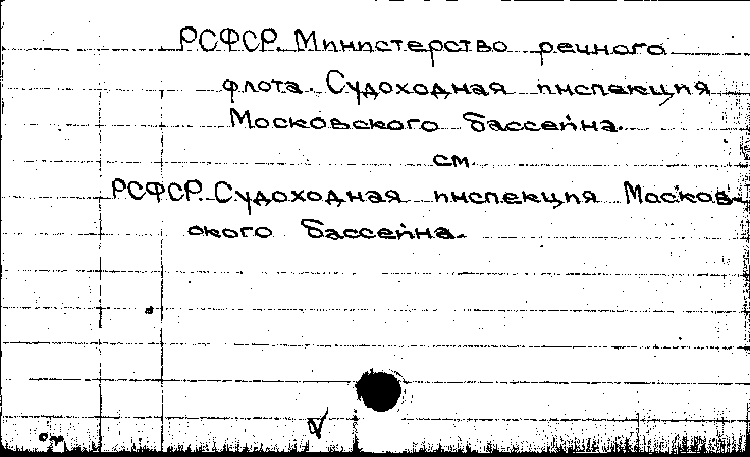 РСФСР. Министерство речного
флота. Судоходная инспекция
Московского бассейна.
см.
РСФСР. Судоходная инспекция Москов-
ского бассейна.